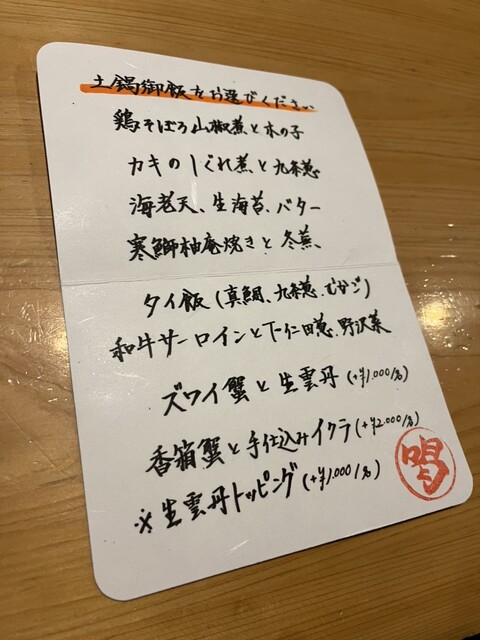 土鍋御飯をお選びください
鶏そぼろ山椒煮と木の子
カキのしぐれ煮と九条葱
海老天、生海苔、バター
寒鰤柚庵焼きと冬蕪、
タイ飯(真鯛、九条葱、むかご)
和牛サーロインと下仁田葱、野沢菜
ズワイ蟹と生雲丹(+¥1.000/名)
香箱蟹と手仕込みイクラ(+¥2.000/名)
※生雲丹トッピング(+¥1.000/名)